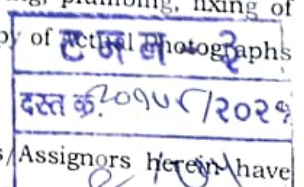 ng, plumbing, fixing of
py of actual photographs
ट ज न - ३
दस्त क्र. २०१५५/२०२१
s/Assignors herein have